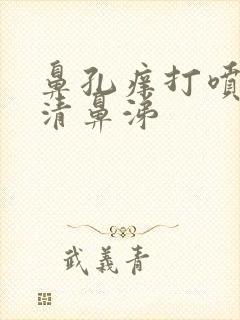 鼻孔痒打喷
清鼻涕
武義青